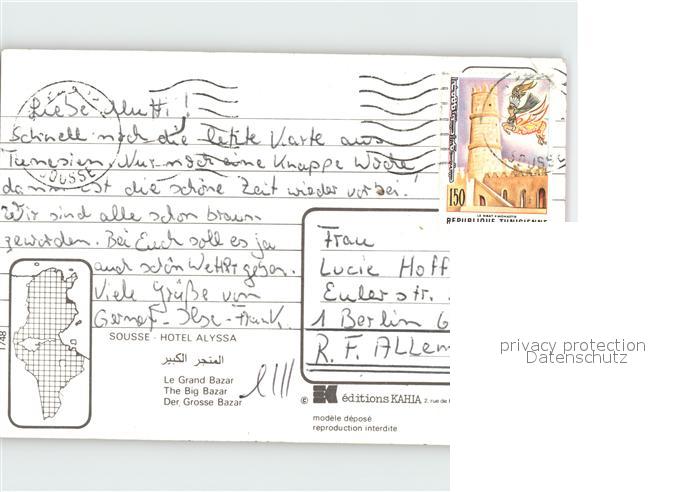 Liebe Mutti!
Schnell noch die letzte Karte aus
Tunesien. Nur noch eine knappe Woche,
dann ist die schöne Zeit wieder vorbei.
Wir sind alle schon braun
geworden. Bei Euch soll es ja
auch schön Wetter geben.
Viele Grüße von
Gernot - Ilse - Frank.
Frau
Lucie Hoff
Eulerstr.
1 Berlin 6
R. F. ALLEM
SOUSSE
150
REPUBLIQUE TUNISIENNE
privacy protection
Datenschutz
1748
SOUSSE - HOTEL ALYSSA
المتجر الكبير
Le Grand Bazar
The Big Bazar
Der Grosse Bazar
© EK éditions KAHIA 2, rue de
modèle déposé
reproduction interdite